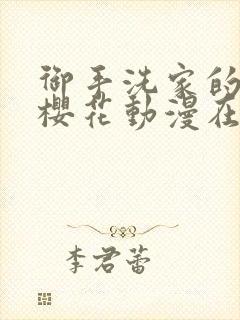 御手洗家的
櫻花動漫在
李君蕾